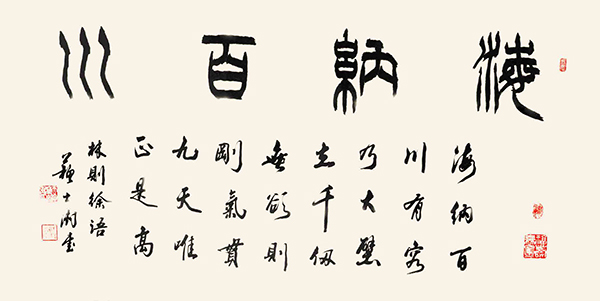 海納百川
海納百
川有容
乃大壁
立千仞
無欲則
剛氣貫
九天唯
正是高
林則徐語
蘇士澍書